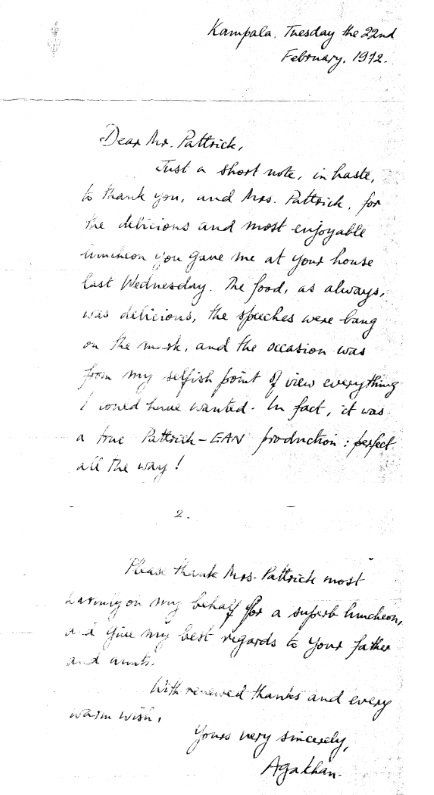 Kampala. Tuesday the 22nd
February. 1972.
Dear Mr. Pattrick,
Just a short note, in haste,
to thank you, and Mrs. Pattrick, for
the delicious and most enjoyable
luncheon you gave me at your house
last Wednesday. The food, as always,
was delicious, the speeches were bang
on the mark, and the occasion was
from my selfish point of view everything
I could have wanted. In fact, it was
a true Pattrick-EAN production: perfect
all the way!
2.
Please thank Mrs. Pattrick most
warmly on my behalf for a superb luncheon,
and give my best regards to your father
and aunts.
With renewed thanks and every
warm wish,
Yours very sincerely,
Aga Khan.